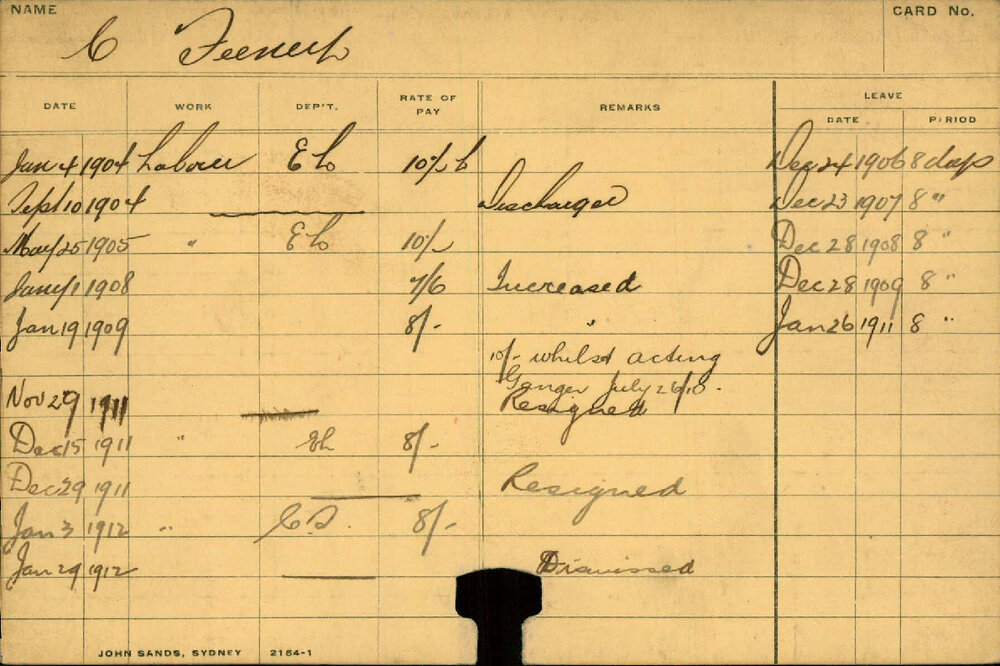 NAME CARD No.
C Feeney
DATE WORK DEP'T. RATE OF PAY REMARKS LEAVE
DATE PERIOD
Jan 4 1904 Labour EL Dec 24 1906 8 days
Sept 10 1904 Discharged Dec 23 1907 8 "
May 25 1905 " EL Dec 28 1908 8 "
Jany 1 1908 7/6 Increased Dec 28 1909 8 "
Jan 19 1909 8/- " Jan 26 1911 8 "
10/- whilst acting
Ganger July 26/10.
Nov 29 1911 Resigned
Dec 15 1911 " EL 8/-
Dec 29 1911 Resigned
Jan 3 1912 " 8/-
Jan 29 1912 Dismissed
JOHN SANDS, SYDNEY 2184-1